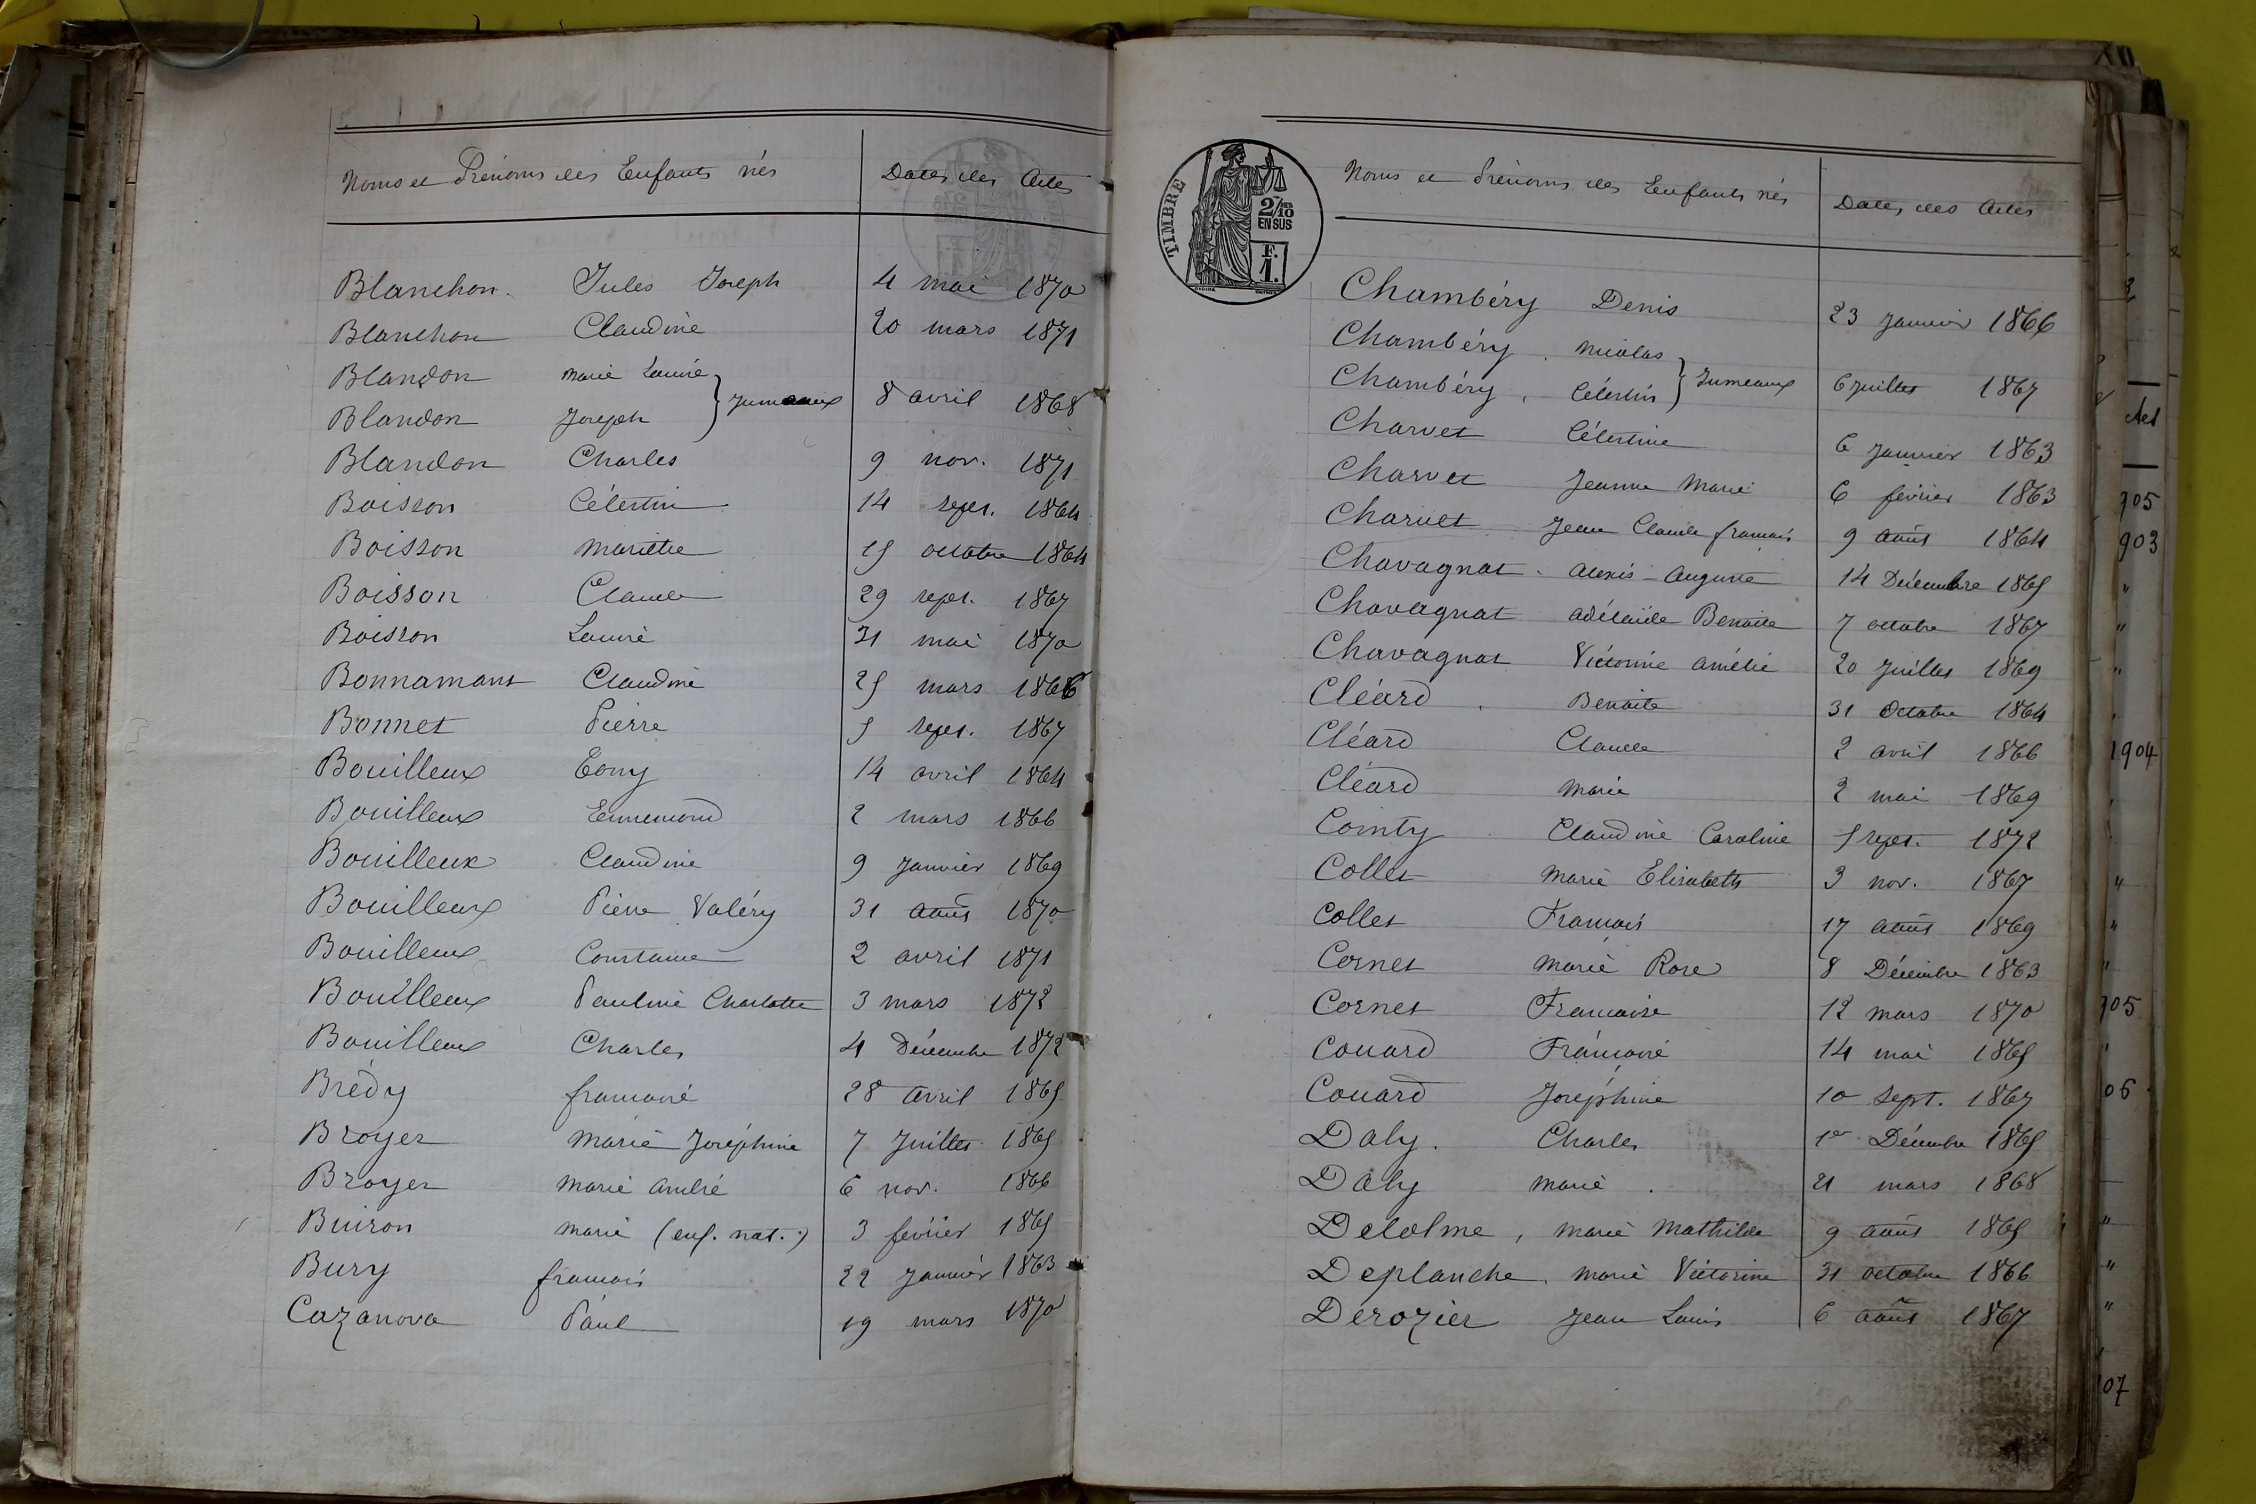 Noms et Prénoms des Enfants nés Dates des Actes
Blanchon. Jules Joseph 4 mai 1870
Blanchon Claudine 20 mars 1871
Blandon Marie Louise
Blandon Joseph } Jumeaux 8 avril 1868
Blandon Charles 9 nov. 1871
Boisson Célestin 14 sept. 1864
Boisson Mariette 15 octobre 1864
Boisson Claude 29 sept. 1867
Boisson Louise 31 mai 1870
Bonnamant Claudine 25 mars 1866
Bonnet Pierre 5 sept. 1867
Bouilleux Tony 14 avril 1864
Bouilleux Ennemond 2 mars 1866
Bouilleux Claudine 9 Janvier 1869
Bouilleux Pierre Valéry 31 août 1870
Bouilleux Constance 2 avril 1871
Bouilleux Pauline Charlotte 3 mars 1872
Bouilleux Charles 4 Décembre 1872
Brédy françoise 28 avril 1865
Broyer Marie Joséphine 7 Juillet 1865
Broyer Marie 6 nov. 1866
Buiron Marie (enf. nat.) 3 février 1865
Bury françois 22 Janvier 1863
Cazanova Paul 19 mars 1870
TIMBRE
2/10
EN SUS
F.
1.
Noms et Prénoms des Enfants nés Dates des Actes
Chambéry Denis 23 Janvier 1866
Chambéry Nicolas
Chambéry, Célestin } Jumeaux 6 Juillet 1867
Charvet Célestine 6 Janvier 1863
Charvet Jeanne Marie 6 février 1863
Charvet Jean Claude françois 9 août 1864
Chavagnat Alexis-Auguste 14 Décembre 1865
Chavagnat Adélaïde Benoite 7 octobre 1867
Chavagnat Victorine Amélie 20 Juillet 1869
Cléard Benoite 31 Octobre 1864
Cléard Claude 2 avril 1866
Cléard Marie 2 mai 1869
Cointy Claudine Caroline 5 sept. 1872
Collet Marie Elisabeth 3 nov. 1867
Collet François 17 août 1869
Cornet Marie Rose 8 Décembre 1863
Cornet Françoise 12 mars 1870
Couard Françoise 14 mai 1865
Couard Joséphine 10 sept. 1867
Daly. Charles 1er Décembre 1865
Daly Marie 21 mars 1868
Delolme, Marie Mathilde 9 août 1865
Deplanche, Marie Victorine 31 octobre 1866
Dérozier Jean Louis 6 août 1867
905
903
1904
905
06
07